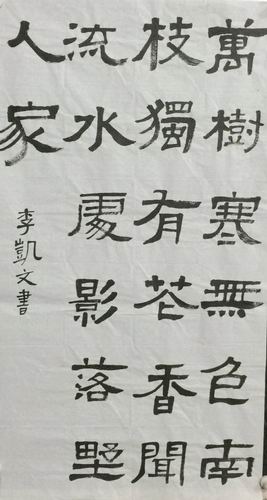 萬樹寒無色南
枝獨有花香聞
流水處影落野
人家
李凱文書